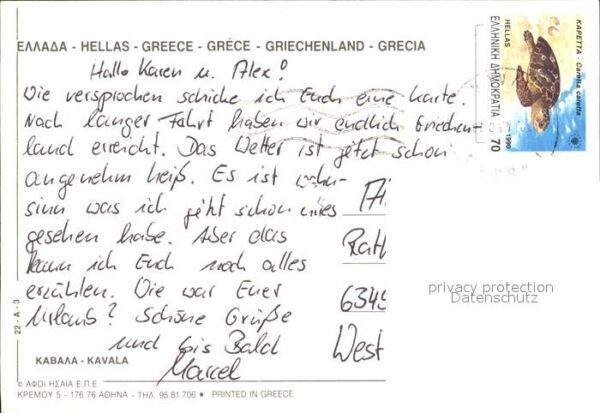 ΕΛΛΑΔΑ - HELLAS - GREECE - GRÈCE - GRIECHENLAND - GRECIA
Hallo Karen u. Alex!
Wie versprochen schicke ich Euch eine Karte.
Nach langer Fahrt haben wir endlich Griechen-
land erreicht. Das Wetter ist jetzt schon
angenehm heiß. Es ist wahn-
sinn was ich jetzt schon alles
gesehen habe. Aber das
kann ich Euch noch alles
erzählen. Wie war Euer
Urlaub? Schöne Grüße
und bis Bald
Marcel
Rath
6345
West
ΚΑΡΕΤΤΑ - Caretta caretta
HELLAS
ΕΛΛΗΝΙΚΗ ΔΗΜΟΚΡΑΤΙΑ
70
1990
privacy protection
Datenschutz
22 - A - 3
ΚΑΒΑΛΑ - KAVALA
© ΑΦΟΙ ΗΣΑΪΑ Ε.Π.Ε
ΚΡΕΜΟΥ 5 - 176 76 ΑΘΗΝΑ - ΤΗΛ. 95.81.706 • PRINTED IN GREECE